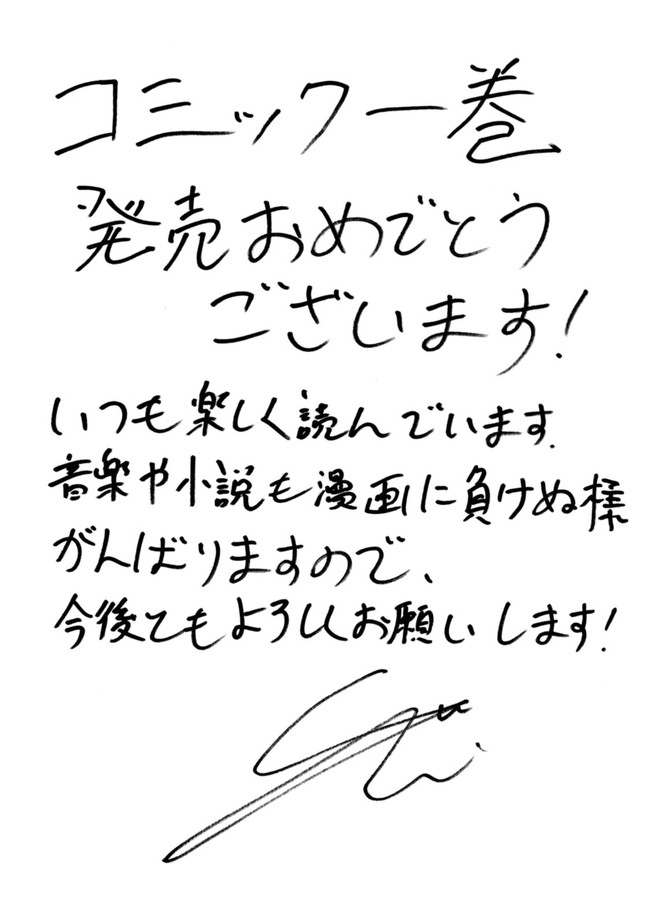 コミック一巻
発売おめでとう
ございます!
いつも楽しく読んでいます.
音楽や小説も漫画に負けぬ様
がんばりますので、
今後ともよろしくお願いします!